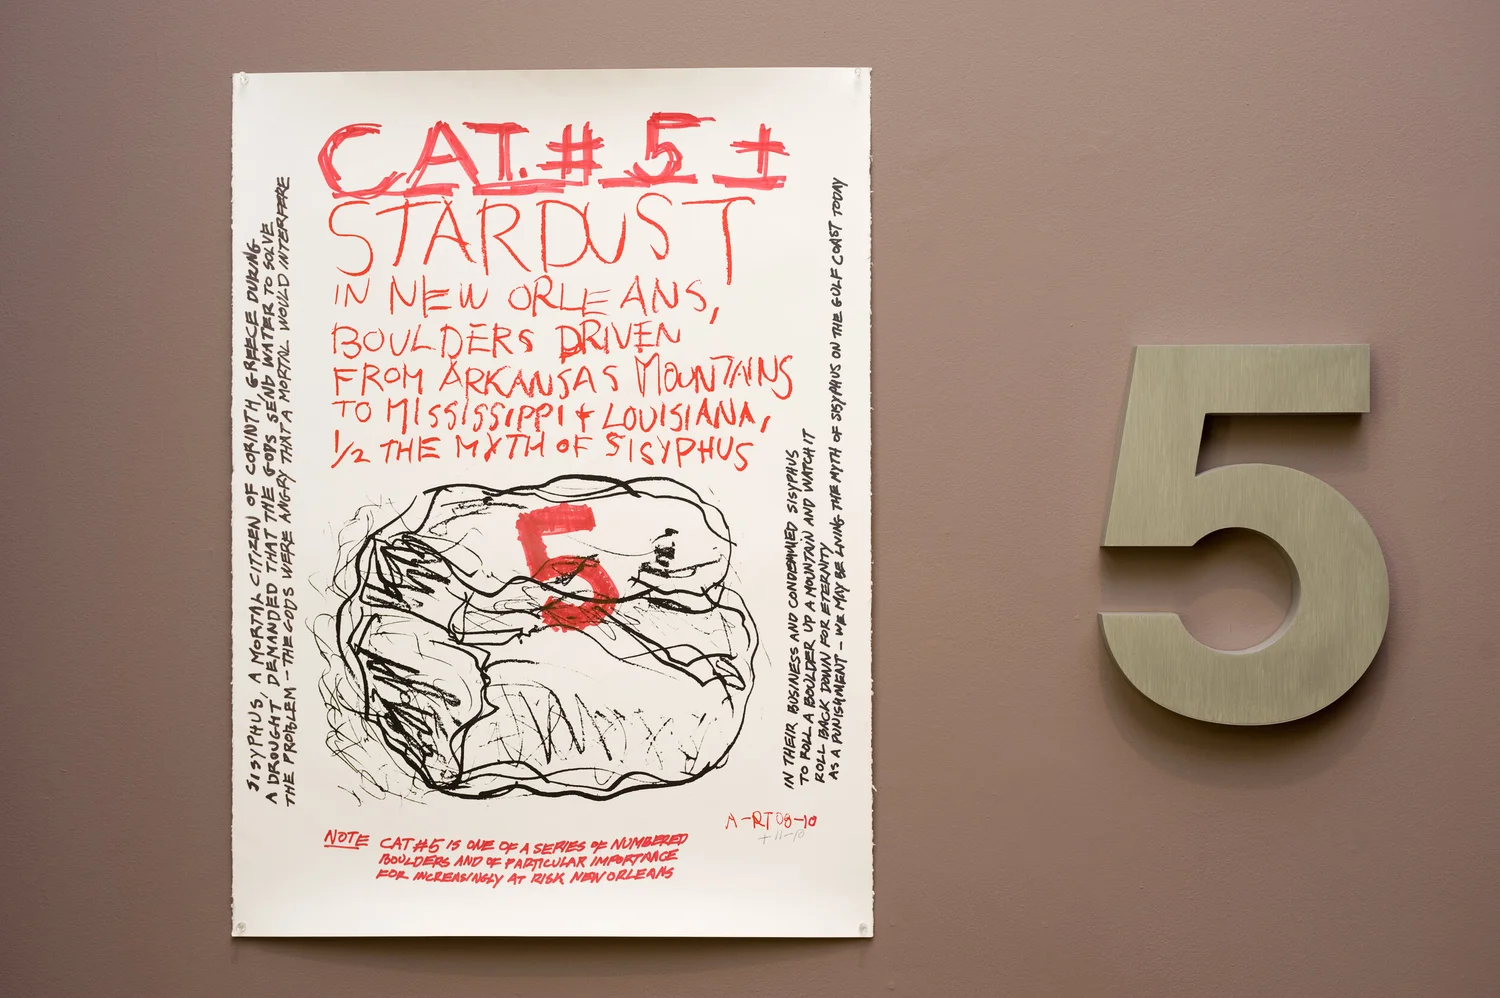 CAT. # 5 ±
STARDUST
IN NEW ORLEANS,
BOULDERS DRIVEN
FROM ARKANSAS MOUNTAINS
TO MISSISSIPPI + LOUISIANA,
1/2 THE MYTH OF SISYPHUS
SISYPHUS, A MORTAL CITIZEN OF CORINTH, GREECE DURING
A DROUGHT, DEMANDED THAT THE GODS SEND WATER TO SOLVE
THE PROBLEM - THE GODS WERE ANGRY THAT A MORTAL WOULD INTERFERE
5
IN THEIR BUSINESS AND CONDEMNED SISYPHUS
TO ROLL A BOULDER UP A MOUNTAIN AND WATCH IT
ROLL BACK DOWN FOR ETERNITY
AS A PUNISHMENT - WE MAY BE LIVING THE MYTH OF SISYPHUS ON THE GULF COAST TODAY
A-RT 08-10
+11-13
NOTE CAT #5 IS ONE OF A SERIES OF NUMBERED
BOULDERS AND OF PARTICULAR IMPORTANCE
FOR INCREASINGLY AT RISK NEW ORLEANS
5